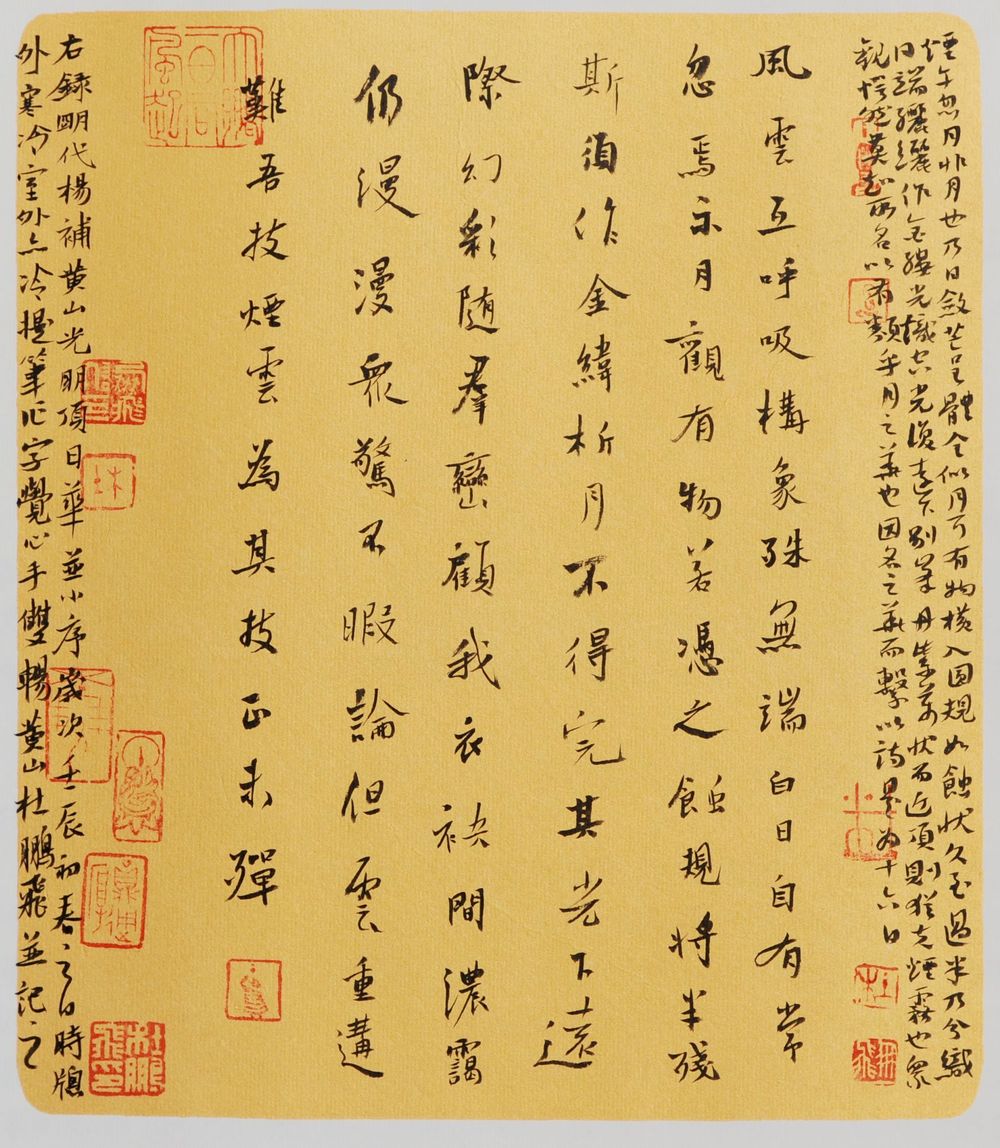 煙午忽月非月也乃日斂芒呈體全似月可有物橫入圓規如蝕狀久至過半乃分幟
日端纚纚作金縷光幟穴光復遠下別峯丹紫萬狀而近頂則猶克煙霧也眾
觀愕然莫知所名以有類乎月之華也因名之華而繫以詩是為十六日
風雲互呼吸構象殊無端白日自有常
忽焉示月觀有物若憑之蝕規將半殘
斯須作金緯析月不得完其光下遠
際幻彩隨羣巒顧我衣袂間濃靄
仍漫漫眾驚不暇論但雲重遘
難吾技煙雲為其技正未殫
右録明代楊補黄山光明頂日華並小序歲次壬辰初春之日時牕
外寒冷室外亦冷提筆作字覺心手雙暢黄山杜鵬飛並記之